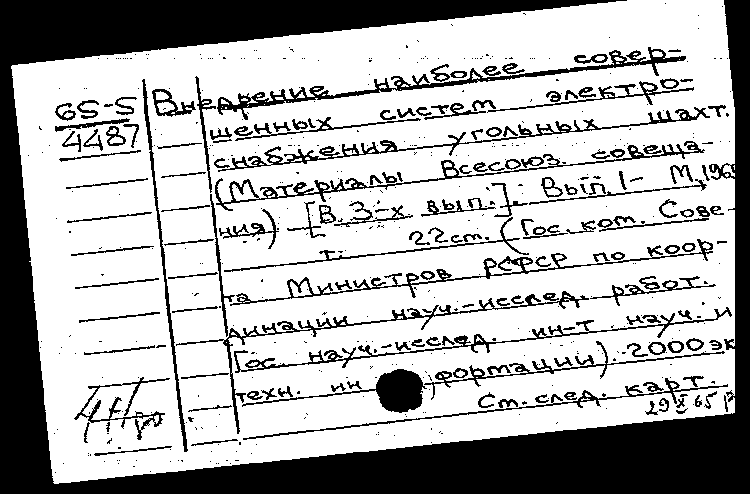 65-5
4487
Внедрение наиболее совер-
шенных систем электро-
снабжения угольных шахт.
(Материалы Всесоюз. совеща-
ния) [В 3-х вып.]. Вып. 1- М., 1965
т. 22 см. (Гос. ком. Сове-
та Министров РСФСР по коор-
динации науч.-исслед. работ.
Гос. науч.-исслед. ин-т науч. и
техн. ин формации). 2000 эк
См. след. карт.
29 X 65